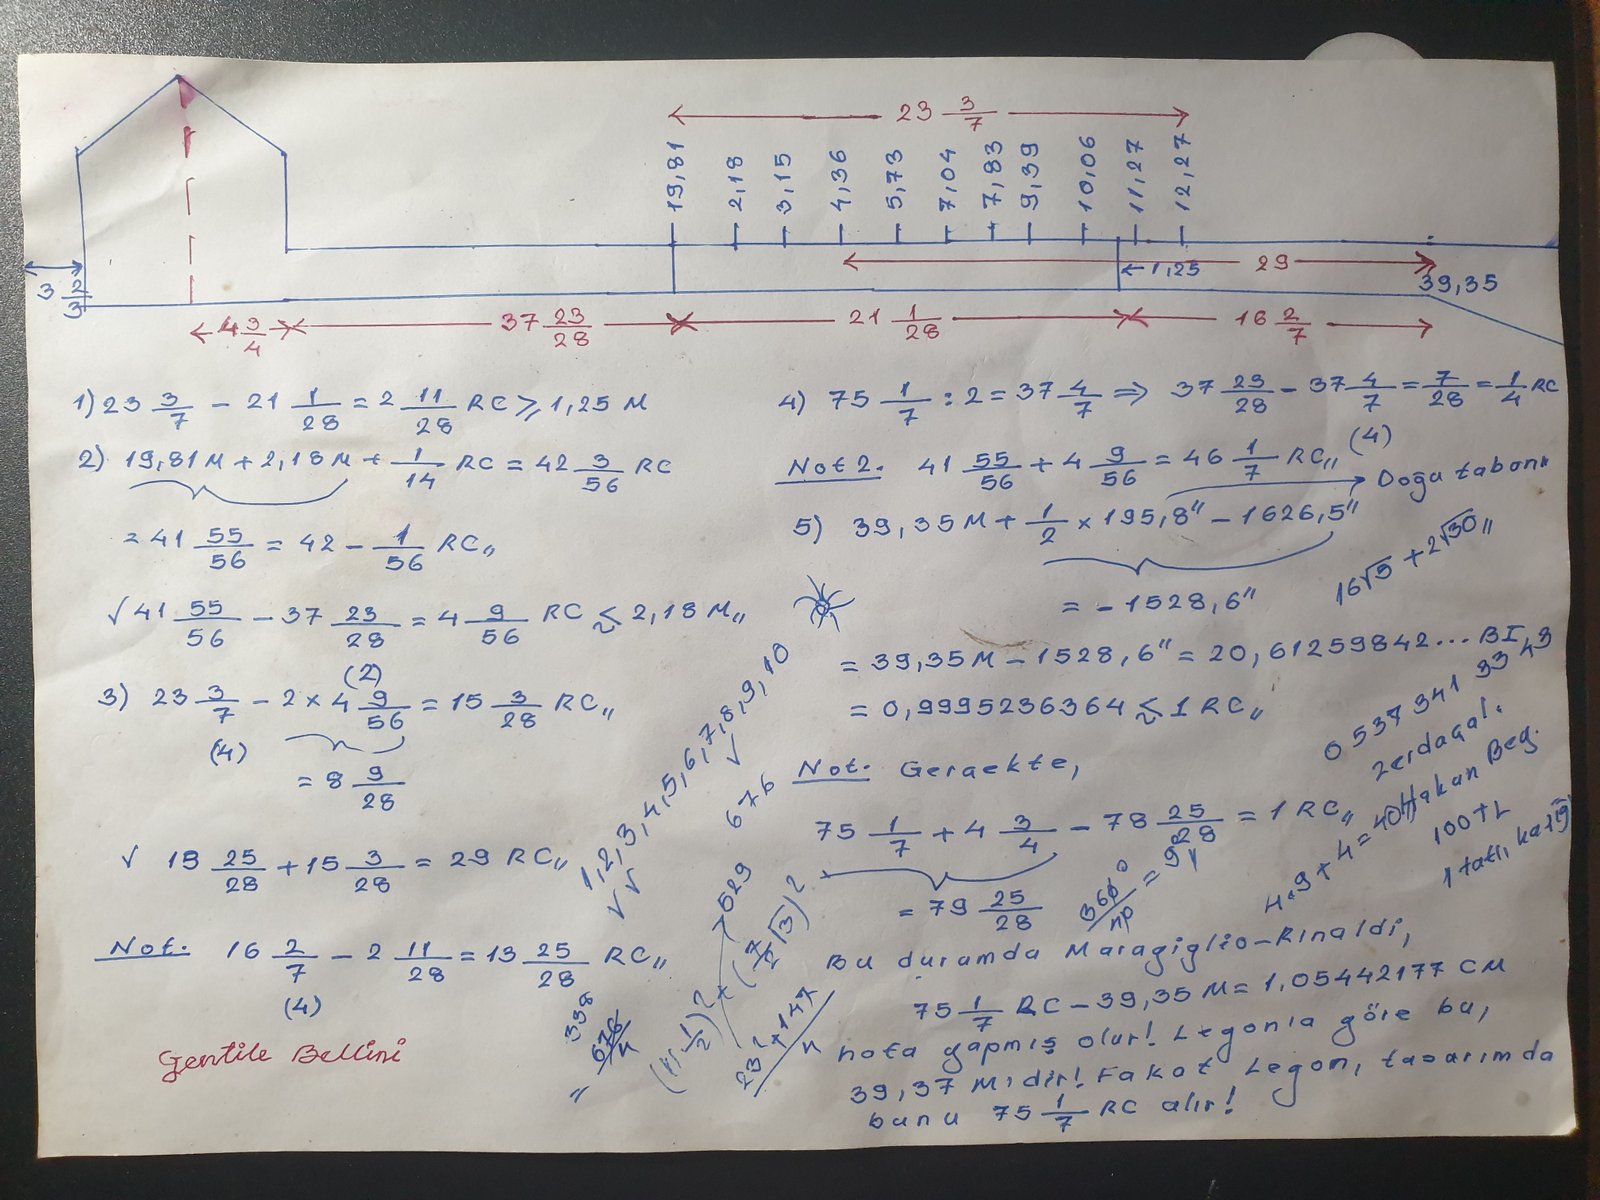 23 3/7
19,81
2,18
3,15
4,36
5,73
7,04
7,83
9,39
10,06
11,27
12,27
1,25
29
39,35
3 2/3
4 3/4
37 23/28
21 1/28
16 2/7
1) 23 3/7 - 21 1/28 = 2 11/28 RC ⩾ 1,25 M
2) 19,81 M + 2,18 M + 1/14 RC = 42 3/56 RC
= 41 55/56 = 42 - 1/56 RC,,
√ 41 55/56 - 37 23/28 = 4 9/56 RC ≲ 2,18 M,,
(2)
3) 23 3/7 - 2 × 4 9/56 = 15 3/28 RC,,
(4)
= 8 9/28
√ 13 25/28 + 15 3/28 = 29 RC,,
Not: 16 2/7 - 2 11/28 = 13 25/28 RC,,
(4)
Gentile Bellini
4) 75 1/7 : 2 = 37 4/7 ⇒ 37 23/28 - 37 4/7 = 7/28 = 1/4 RC
(4)
Not 2. 41 55/56 + 4 9/56 = 46 1/7 RC,,
Doğu tabanı
5) 39,35 M + 1/2 × 195,8" - 1626,5"
= -1528,6"
16√5 + 2√30,,
= 39,35 M - 1528,6" = 20,61259842... BI,3
= 0,9995236364 ≲ 1 RC,,
Not: Gerçekte,
75 1/7 + 4 3/4 - 78 25/28 = 1 RC,,
= 79 25/28
Bu durumda Maragiglio-Rinaldi,
75 1/7 RC - 39,35 M = 1,05442177 CM
hata yapmış olur! Legon'a göre bu,
39,37 M'dir! Fakat Legon, tasarımda
bunu 75 1/7 RC alır!
1,2,3,4,5,6,7,8,9,10
√ √ √
676
529
338
676/n
23² + 147/n
0 537 341 33 43
zerdaçal.
Hakan Beg.
100 TL
4.9 + 4 = 40